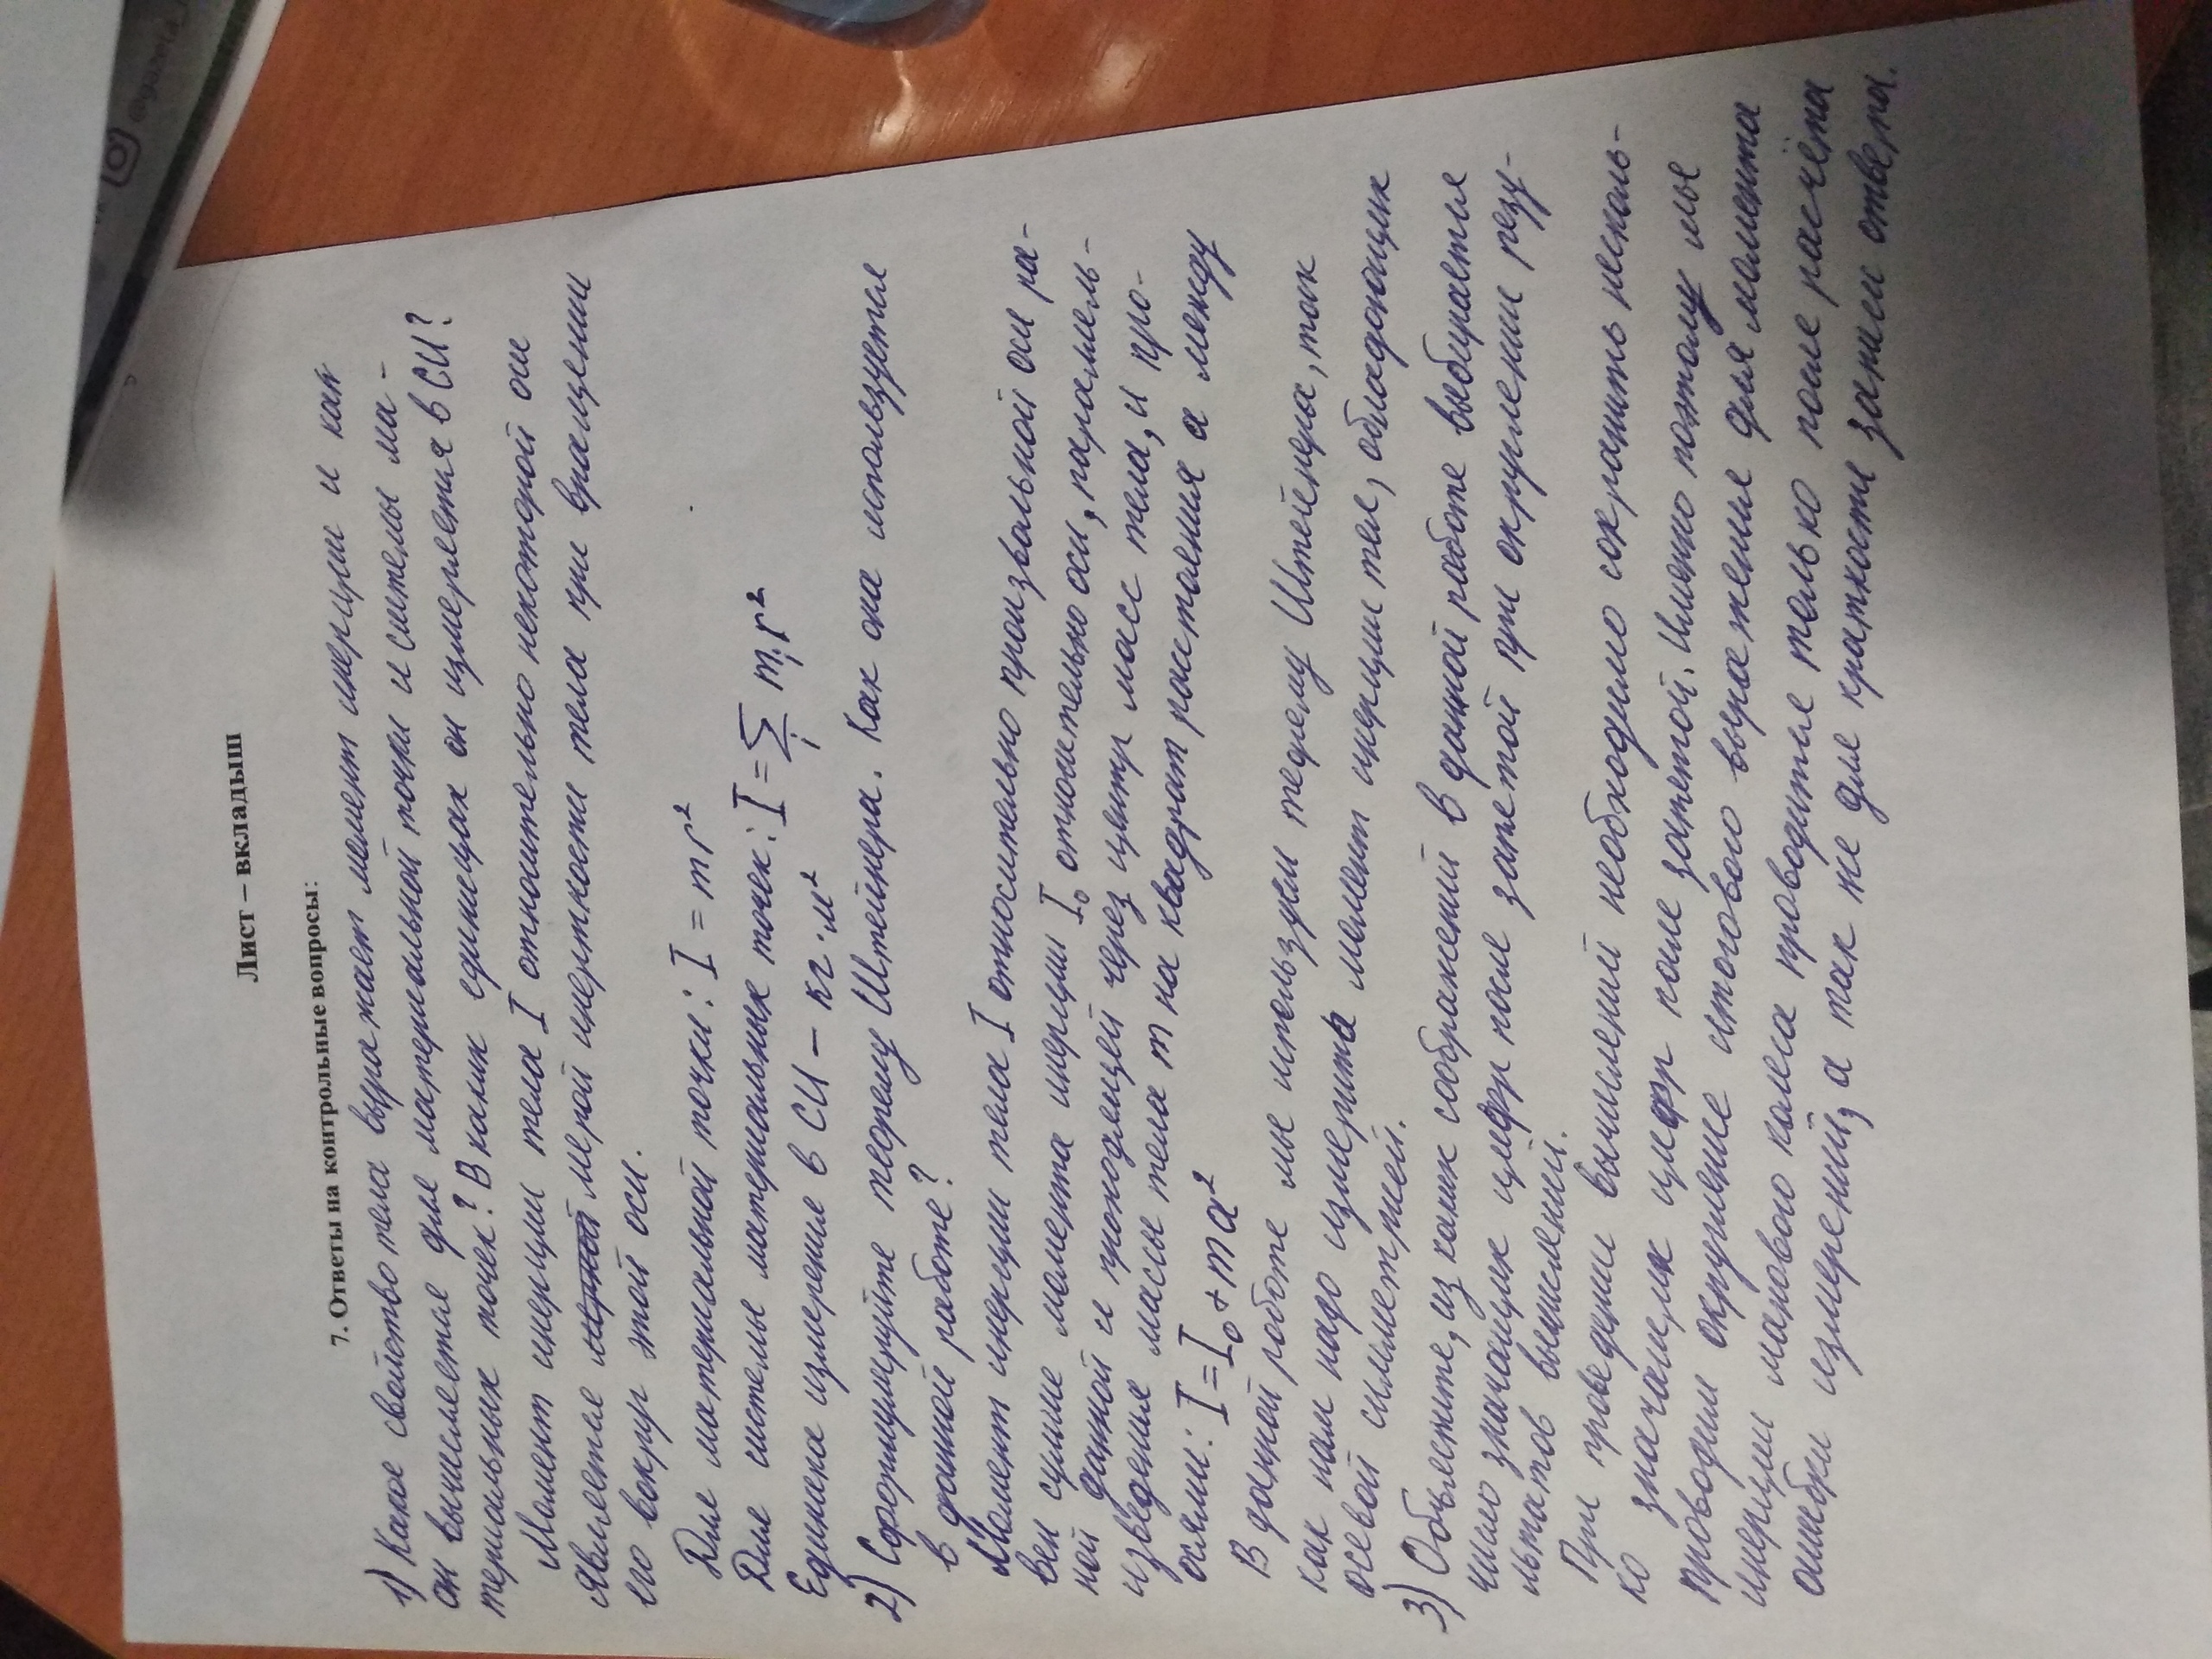 Лист – вкладыш
7. Ответы на контрольные вопросы:
1) Какое свойство тела выражает момент инерции и как
он вычисляется для материальной точки и системы ма-
териальных точек? В каких единицах он измеряется в СИ?
Момент инерции тела I относительно некоторой оси
является мерной мерой инертности тела при вращении
его вокруг этой оси.
Для материальной точки: I = mr²
Для системы материальных точек: I = ∑ᵢ mᵢr²
Единица измерения в СИ – кг·м²
2) Сформулируйте теорему Штейнера. Как она используется
в данной работе?
Момент инерции тела I относительно произвольной оси ра-
вен сумме момента инерции I₀ относительно оси, параллель-
ной данной и проходящей через центр масс тела, и про-
изведения массы тела m на квадрат расстояния a между
осями: I=I₀+ma²
В данной работе мы используем теорему Штейнера, так
как нам надо измерить момент инерции тел, обладающих
осевой симметрией.
3) Объясните, из каких соображений в данной работе выбирается
число значащих цифр после запятой при округлении резу-
льтатов вычислений.
При проведении вычислений необходимо сохранить несколь-
ко значащих цифр после запятой. Именно поэтому мы
проводим округление итогового выражения для момента
инерции махового колеса проводится только после расчёта
ошибки измерений, а так же для краткости записи ответа.